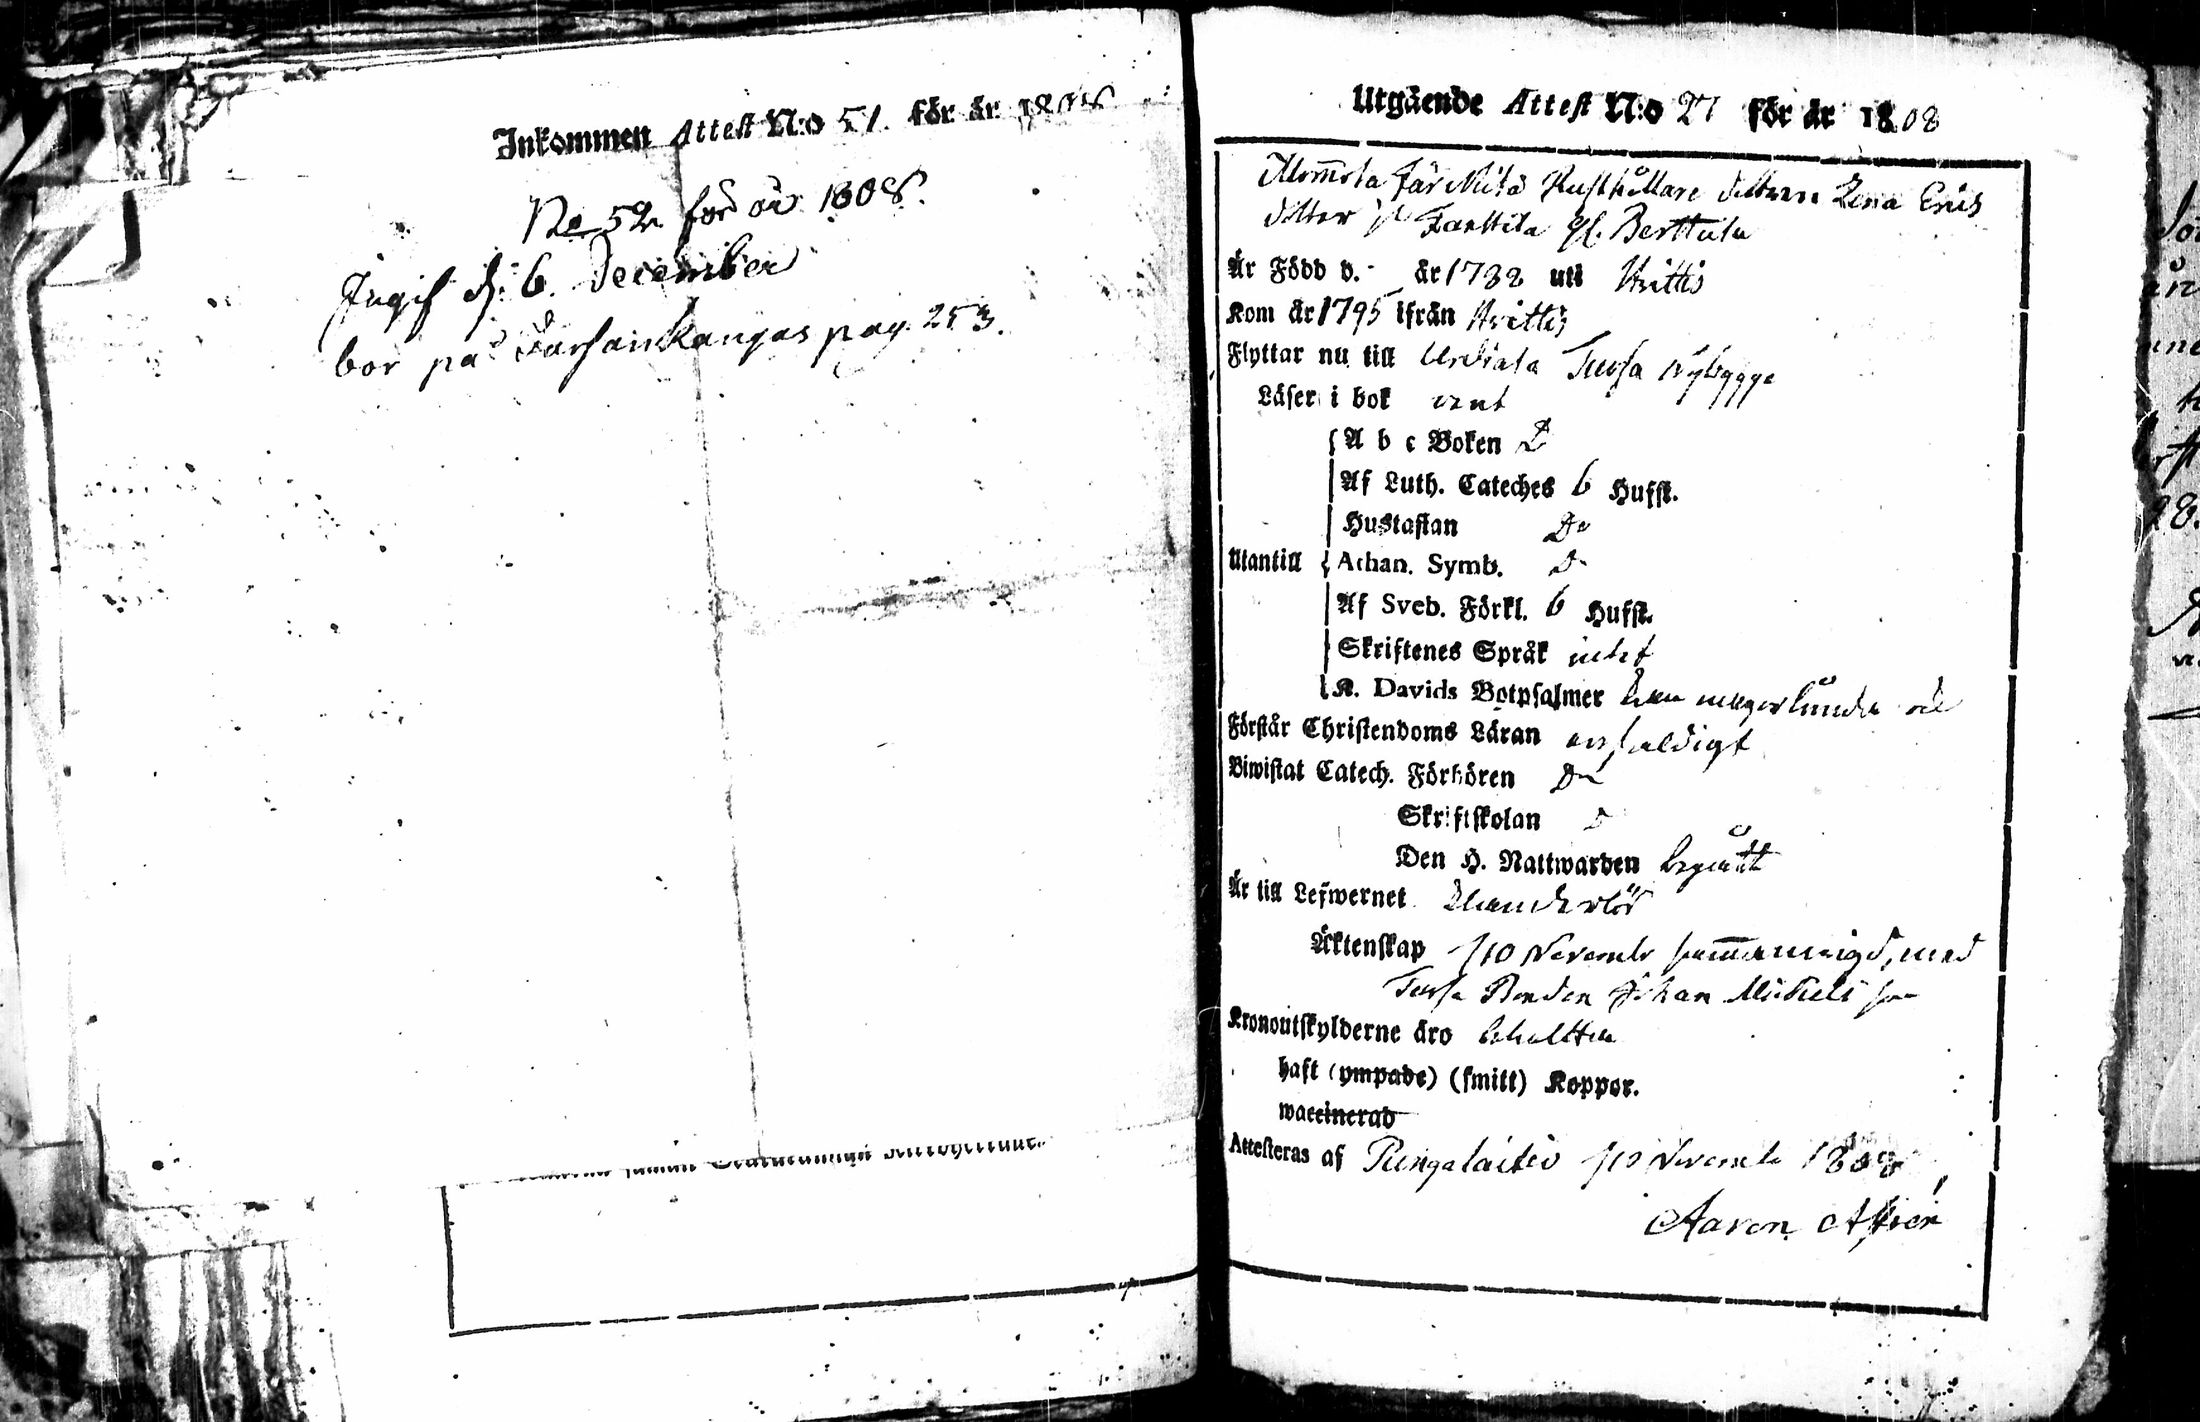 Inkommen Attest N:o 51. för år 1808
No 52 för år 1808.
Ingif d: 6. December
bor på kangas pag. 253.
Utgående Attest N:o 27 för år 1808
Rusthållare Lena Erics
dotter Berttula
Är Född d. - år 1782 uti Hvittis
Kom år 1795 ifrån Hvittis
Flyttar nu till Urdiala Tursa nybygge
Läser i bok rent
A b c Boken D
Af Luth. Cateches 6 Hufst.
Hustaflan Do
Utantill Athan. Symb. D
Af Sveb. Förkl. 6 Hufst.
Skriftenes Språk intet
K. Davids Botpsalmer
Förstår Christendoms Läran enfaldigt
Biwistat Catech. Förhören Do
Skriftskolan D
Den H. Nattwarden begått
Är till Lefwernet klanderlös
Äktenskap 10 Novemb sammanvigd, med
Tursa Bonden Johan Mickels son
Kronoutskylderne äro behallten
haft (ympade) (smitt) Koppor.
waccinerad
Attesteras af Pungalaitio 10 Novemb 1808,
Aaron